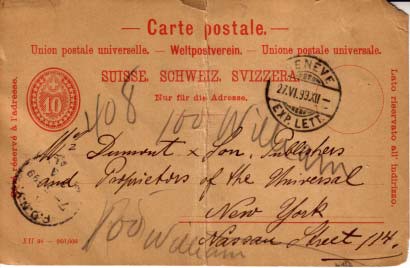 — Carte postale. —
Union postale universelle. — Weltpostverein. — Unione postale universale.
SUISSE. SCHWEIZ. SVIZZERA.
Nur für die Adresse.
Côté réservé à l'adresse.
Lato riservato all' indirizzo.
10
GENÈVE
27.VI.99.XII
EXP. LETT.
408
100 William
Dumont & Son, Publishers
and Proprietors of the Universal
New York
Nassau Street 114.
100 William
XII 98 — 960,000